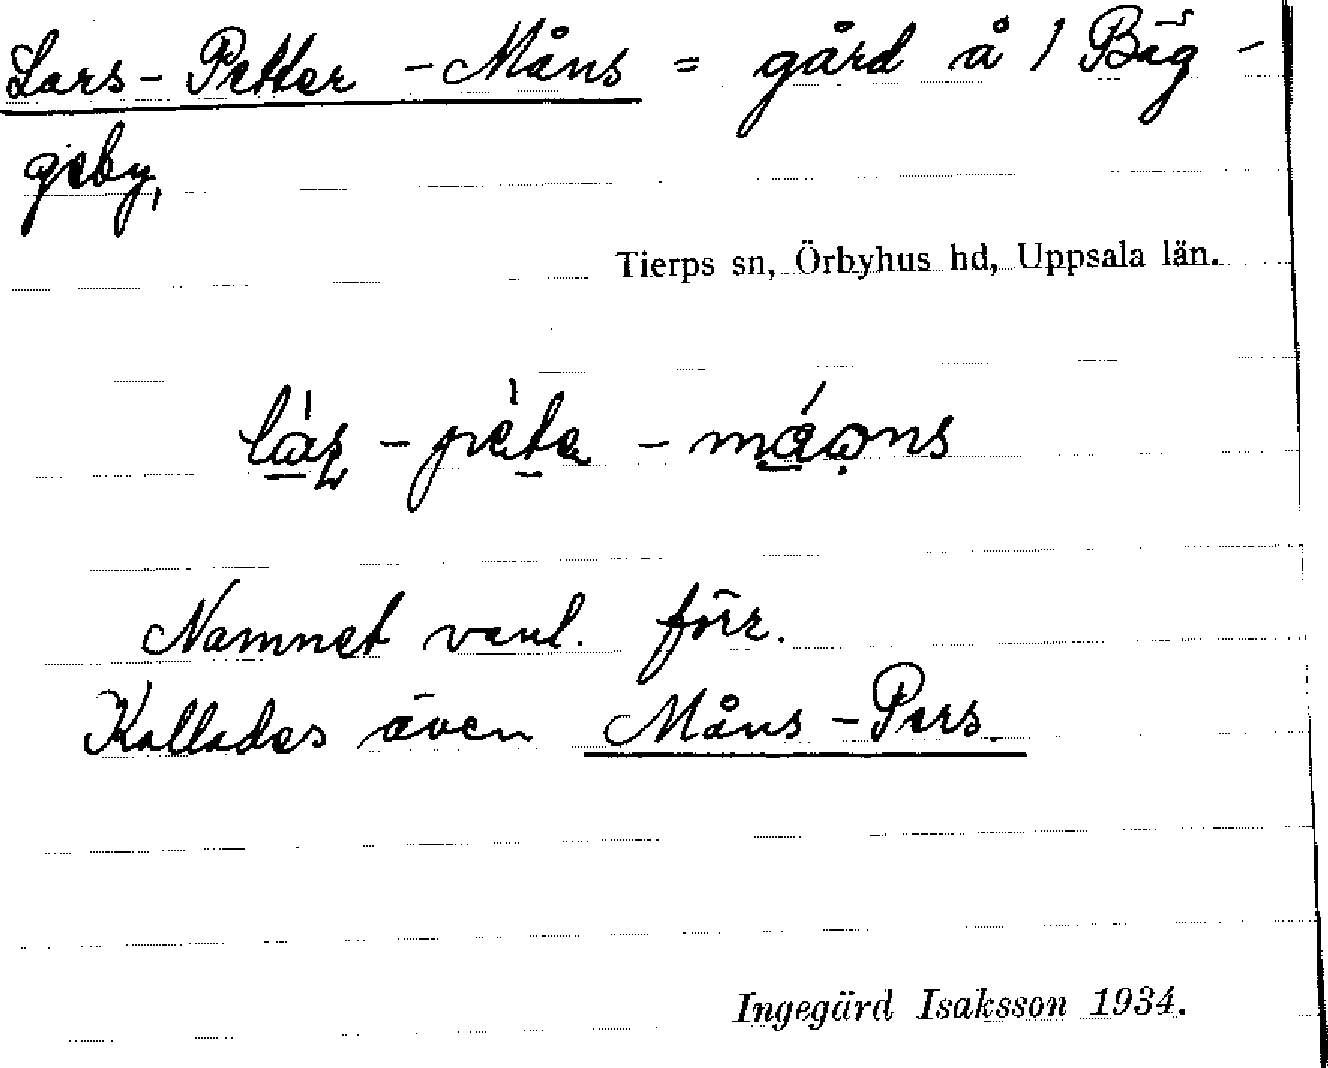 Lars-Petter-Måns = gård å 1 Bäg-
geby,
Tierps sn, Örbyhus hd, Uppsala län.
Namnet vanl. förr.
Kallades även Måns-Pers.
Ingegärd Isaksson 1934.